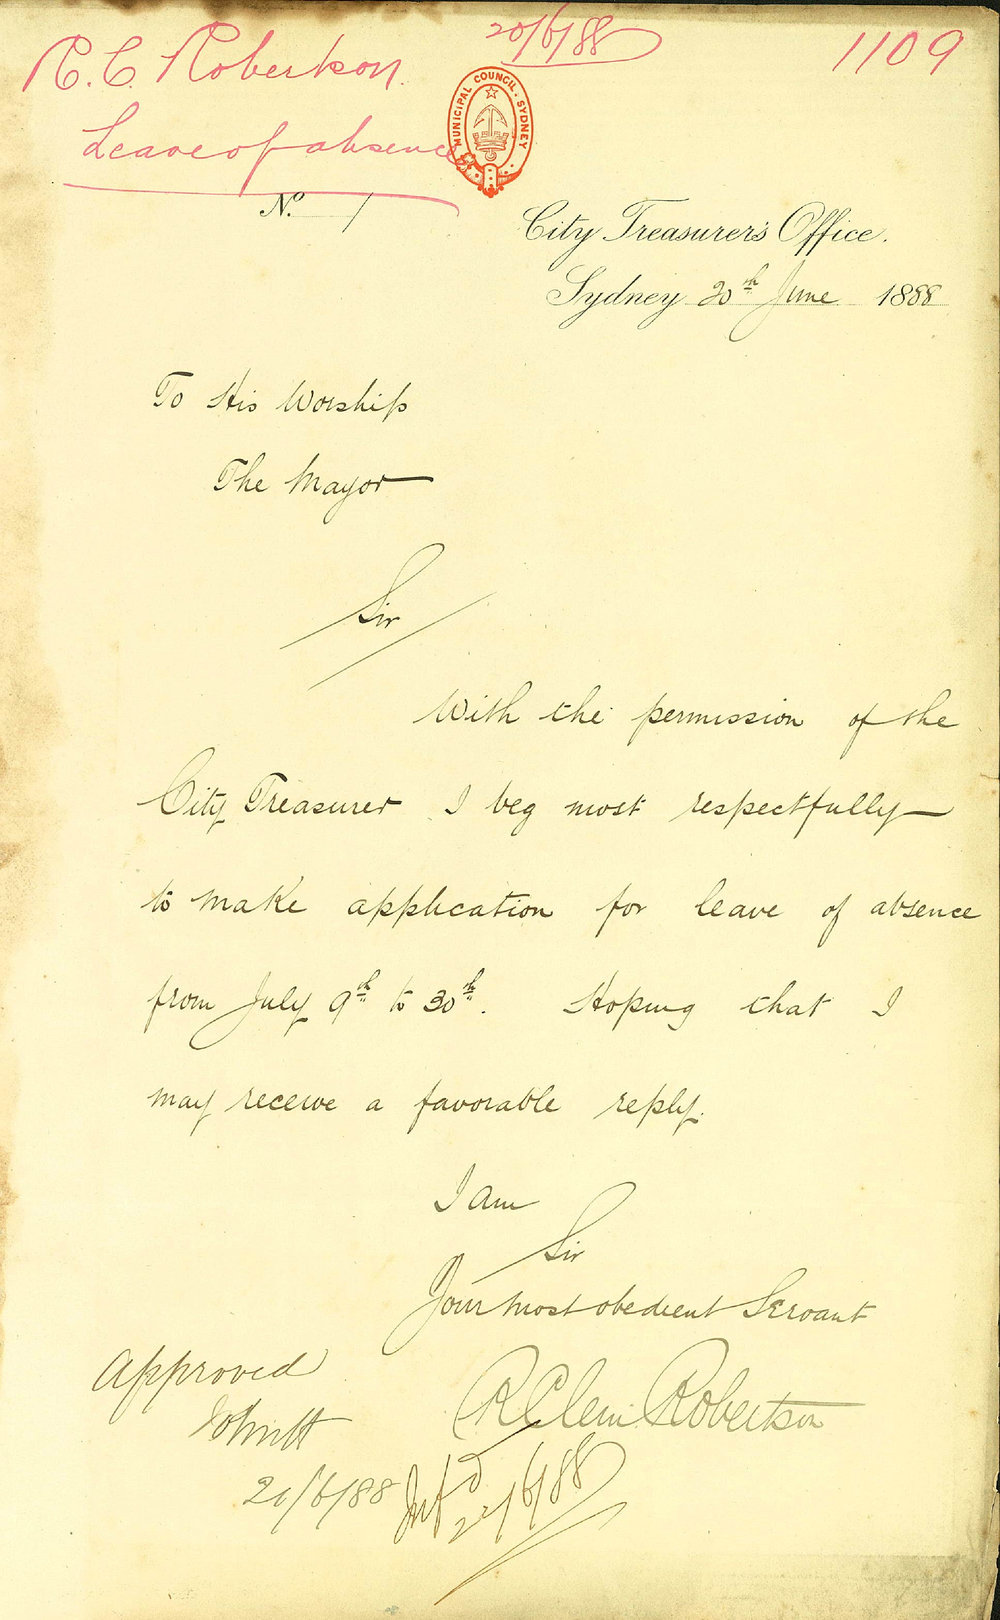 20/6/88
1109
R. C. Robertson
Leave of absence
MUNICIPAL COUNCIL. SYDNEY
No. /
City Treasurer's Office.
Sydney 20th June 1888
To His Worship
The Mayor
Sir
With the permission of the
City Treasurer I beg most respectfully
to make application for leave of absence
from July 9th to 30th. Hoping that I
may receive a favorable reply.
I am
Sir
Your most obedient Servant
R Clem Robertson
Approved
21/6/88
Infd
22/6/88